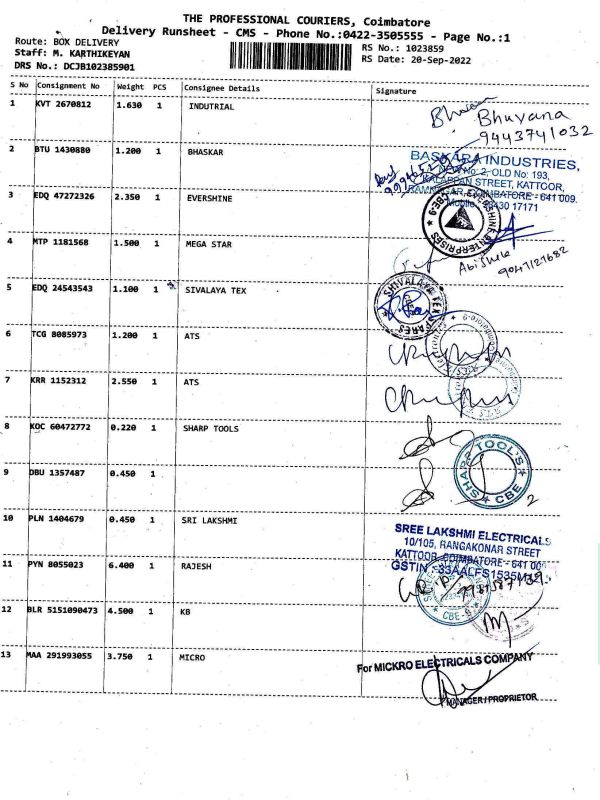 THE PROFESSIONAL COURIERS, Coimbatore
Delivery Runsheet - CMS - Phone No.:0422-3505555 - Page No.:1
Route: BOX DELIVERY
Staff: M. KARTHIKEYAN
DRS No.: DCJB102385901
RS No.: 1023859
RS Date: 20-Sep-2022
S No Consignment No Weight PCS Consignee Details Signature
1 KVT 2670812 1.630 1 INDUTRIAL
Bhuvana
9443741032
2 BTU 1430880 1.200 1 BHASKAR
BASKARA INDUSTRIES,
New No: 2, OLD No: 193,
STREET, KATTOOR,
RAMNAGAR, COIMBATORE - 641 009.
3 EDQ 47272326 2.350 1 EVERSHINE
EVERSHINE ENTERPRISES CBE-9
4 MTP 1181568 1.500 1 MEGA STAR
9047127682
5 EDQ 24543543 1.100 1 SIVALAYA TEX
SHIVALAYA TEX
6 TCG 8085973 1.200 1 ATS
7 KRR 1152312 2.550 1 ATS
8 KOC 60472772 0.220 1 SHARP TOOLS
SHARP TOOL'S CBE
9 DBU 1357487 0.450 1
2
10 PLN 1404679 0.450 1 SRI LAKSHMI
SREE LAKSHMI ELECTRICALS
10/105, RANGAKONAR STREET
KATTOOR, COIMBATORE - 641 00
GSTIN : 33AALFS1535M
11 PYN 8055023 6.400 1 RAJESH
12 BLR 5151090473 4.500 1 KB
13 MAA 291993055 3.750 1 MICRO
For MICKRO ELECTRICALS COMPANY
MANAGER / PROPRIETOR